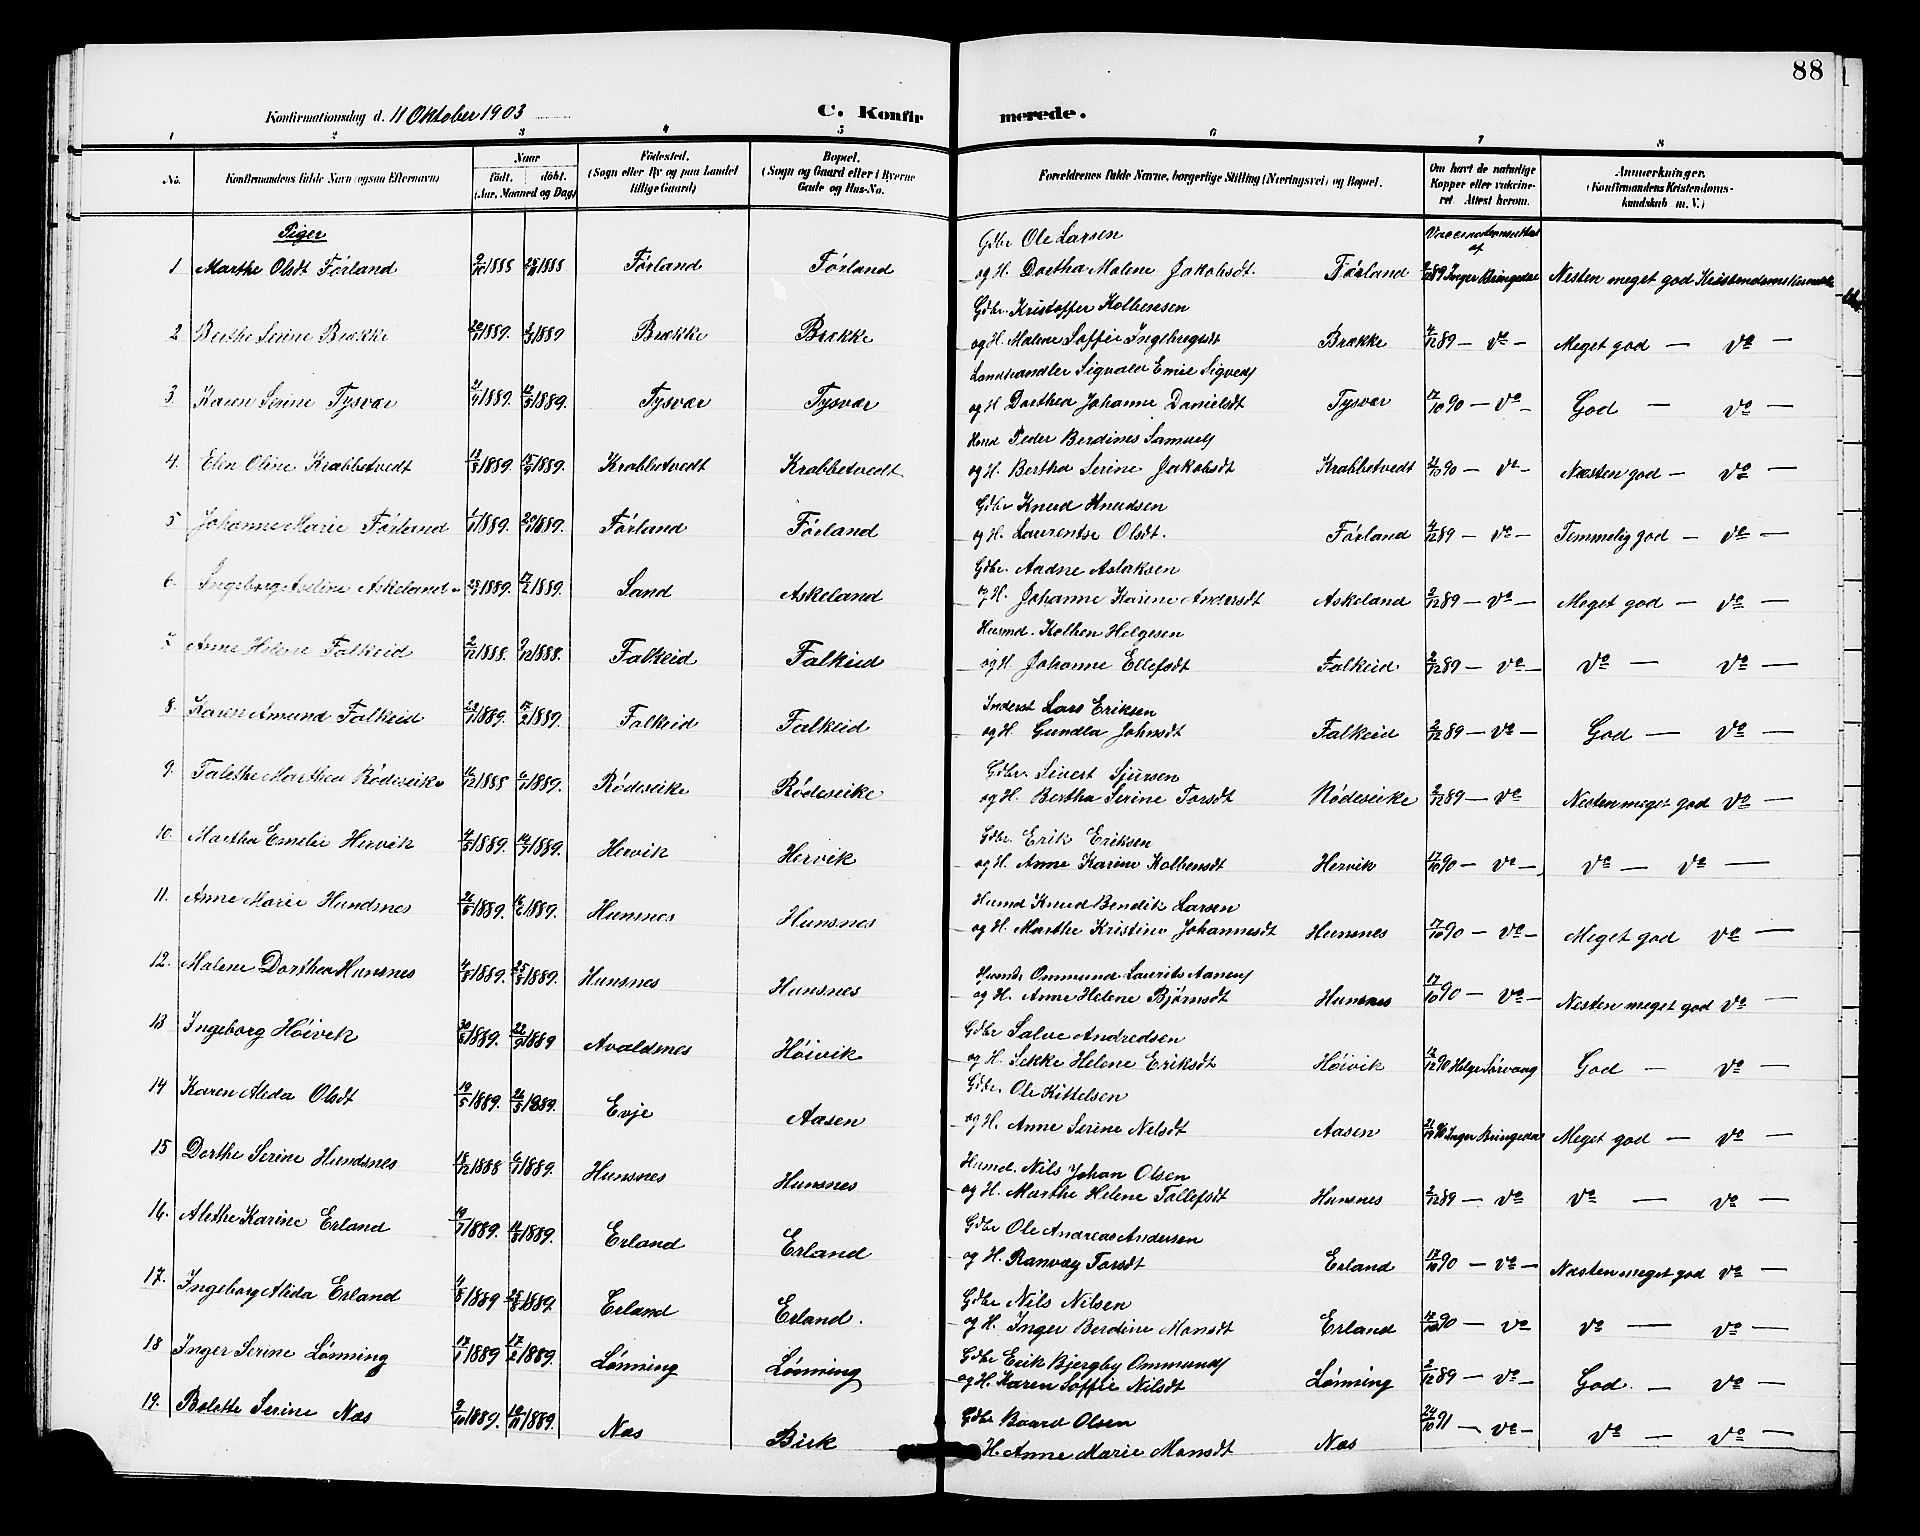 88
Konfirmationsdag d. 11 Oktober 1903
C. Konfirmerede.
1 2 3 4 5 6 7 8
No. Konfirmandens fulde Navn (ogsaa Efternavn) Naar født. døbt. (Aar, Maaned og Dag) Fødested. (Sogn eller By og paa Landet tillige Gaard) Bopæl. (Sogn og Gaard eller i Byerne Gade og Hus-No. Forældrenes fulde Navne, borgerlige Stilling (Næringsvei) og Bopæl. Om havt de naturlige Kopper eller vakcineret Attest herom. Anmærkninger. (Konfirmandens Kristendomskundskab m. V.)
Piger
Gdbr Ole Larsen
1 Marthe Olsdt Førland 1888 1888 Førland Førland og H. Dortha Malene Jakobsdt. Førland 89 Inger Bringedal Nesten meget god Kristendomskundsk
Gdbr. Kristoffer Kolbensen
2 Berthe Serine Brække 1889 1889 Brække Brække og H. Malene Soffie Ingebregsdt Brække 4/12 89 — do — Meget god — do —
Landhandler Sigvald Emil Sigveds
3 Karen Serine Tysvær 1889. 1889. Tysvær Tysvær og H Dorthea Johanne Danielsdt Tysvær 17/10 90 — do — God — do —
Husmd Peder Berdines Samuels
4. Elen Oline Krabbetvedt 1889. 1889. Krabbetvedt Krabbetvedt og H. Bertha Serine Jakobsdt Krabbetvedt 90 — do — Næsten god — do —
Gdbr Knud Knudsen
5 Johanne Marie Førland 1889. 1889. Førland Førland og H. Laurentse Olsdt. Førland 4/12 89 — do — Temmelig god — do —
Gdbr. Aadne Aslaksen
6. Ingeborg Aseline Askeland 1889. 17/2 1889. Sand Askeland og H. Johanne Karine Andersdt Askeland 2/12 89 — do — Meget god — do —
Husmd. Kolben Helgesen
7. Anne Helene Falkeid 2/12 1888. 9/12 1888. Falkeid Falkeid og H. Johanne Ellefsdt Falkeid 2/12 89 — do — do — do —
Inderst Lars Eriksen
8. Karen Amund Falkeid 1889. 17/2 1889. Falkeid Falkeid og H. Gundla Johnsdt Falkeid 2/12 89 — do — God — do —
Gdbr. Sivert Sjursen
9. Talethe Marthea Rødeseike 16/12 1888 6/1 1889. Rødeseike Rødeseike og H. Bertha Serine Torsdt Rødeseike 2/12 89 — do Nesten meget god do —
Gdbr. Erik Eriksen
10. Martha Emelie Hervik 1889. 1889. Hervik Hervik og H. Anne Karine Kolbensdt Hervik 17/10 90 — do — do — do —
Husmd Knud Bendik Larsen
11. Anne Marie Hundsnes 1889. 1889. Hunsnes Hunsnes og H. Marthe Kristine Johannesdt Hunsnes 17/10 90 — do — Meget god do —
Husmd. Ommund Laurits Aanens
12. Malene Dorthea Hunsnes 1889. 25/8 1889. Hunsnes Hunsnes og H. Anne Helene Bjørnsdt Hunsnes 17/10 90 — do — Nesten meget god do —
Gdbr Salve Andredsen
13 Ingeborg Høivik 1889. 1889 Avaldsnes Høivik og H. Sekke Helene Eriksdt Høivik 90 Helge Sørvaag God — do —
Gdbr. Ole Kittelsen
14 Karen Alida Olsdt 19/5 1889. 26/5 1889. Evje Aasen og H. Anne Serine Nilsdt Aasen 90 Inger Bringedal Meget god — do —
Husmd. Nils Johan Olsen
15 Dorthe Serine Hundsnes 18/12 1888 6/1 1889. Hunsnes Hunsnes og H. Marthe Helene Tallefsdt Hunsnes 2/12 89 — do do — do —
Gdbr Ole Andreas Andersen
16. Alethe Karine Erland 1889. 1889. Erland Erland og H. Ranvæg Torsdt Erland 17/10 90 — do — Næsten meget god do —
Gdbr Nils Nilsen
17. Ingeborg Alida Erland 1889 1889. Erland Erland. og H. Inger Berdine Monsdt Erland 17/10 90 — do do — do —
Gdbr Erik Bjergby Ommunds
18 Inger Serine Lønning 1889 17/2 1889. Lønning Lønning og H. Karen Soffie Nilsdt Lønning 2/12 89 — do — God. — do —
Gdbr Baard Olsen
19. Bolette Serine Næs 9/10 1889. 1889. Næs Birk H. Anne Marie Monsdt Næs 24/10 91 — do — do — do —